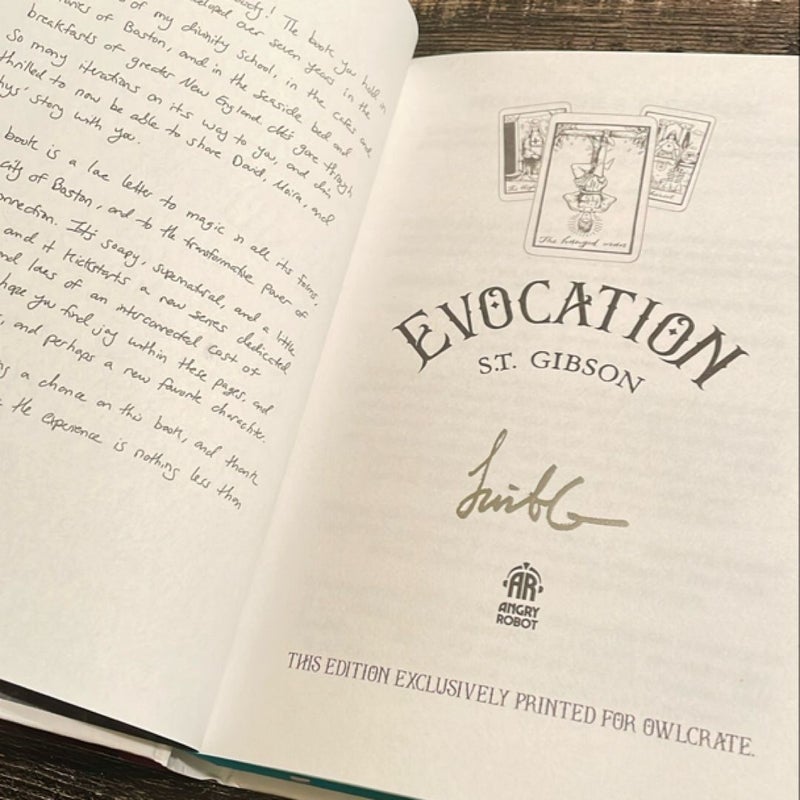 The book you hold in
developed over seven years in the
of my divinity school, in the cafes and
of Boston, and in the seaside bed and
breakfasts of greater New England. It's gone through
So many iterations on its way to you, and I'm
thrilled to now be able to share David, Moira, and
Rhys' story with you.
book is a love letter to magic in all its forms,
city of Boston, and to the transformative power of
connection. It's soapy, supernatural, and a little
and it kickstarts a new series dedicated
and loves of an interconnected cast of
hope you find joy within these pages, and
and perhaps a new favorite character.
a chance on this book, and thank
the experience is nothing less than
The hanged man
EVOCATION
S.T. GIBSON
AR
ANGRY
ROBOT
THIS EDITION EXCLUSIVELY PRINTED FOR OWLCRATE.